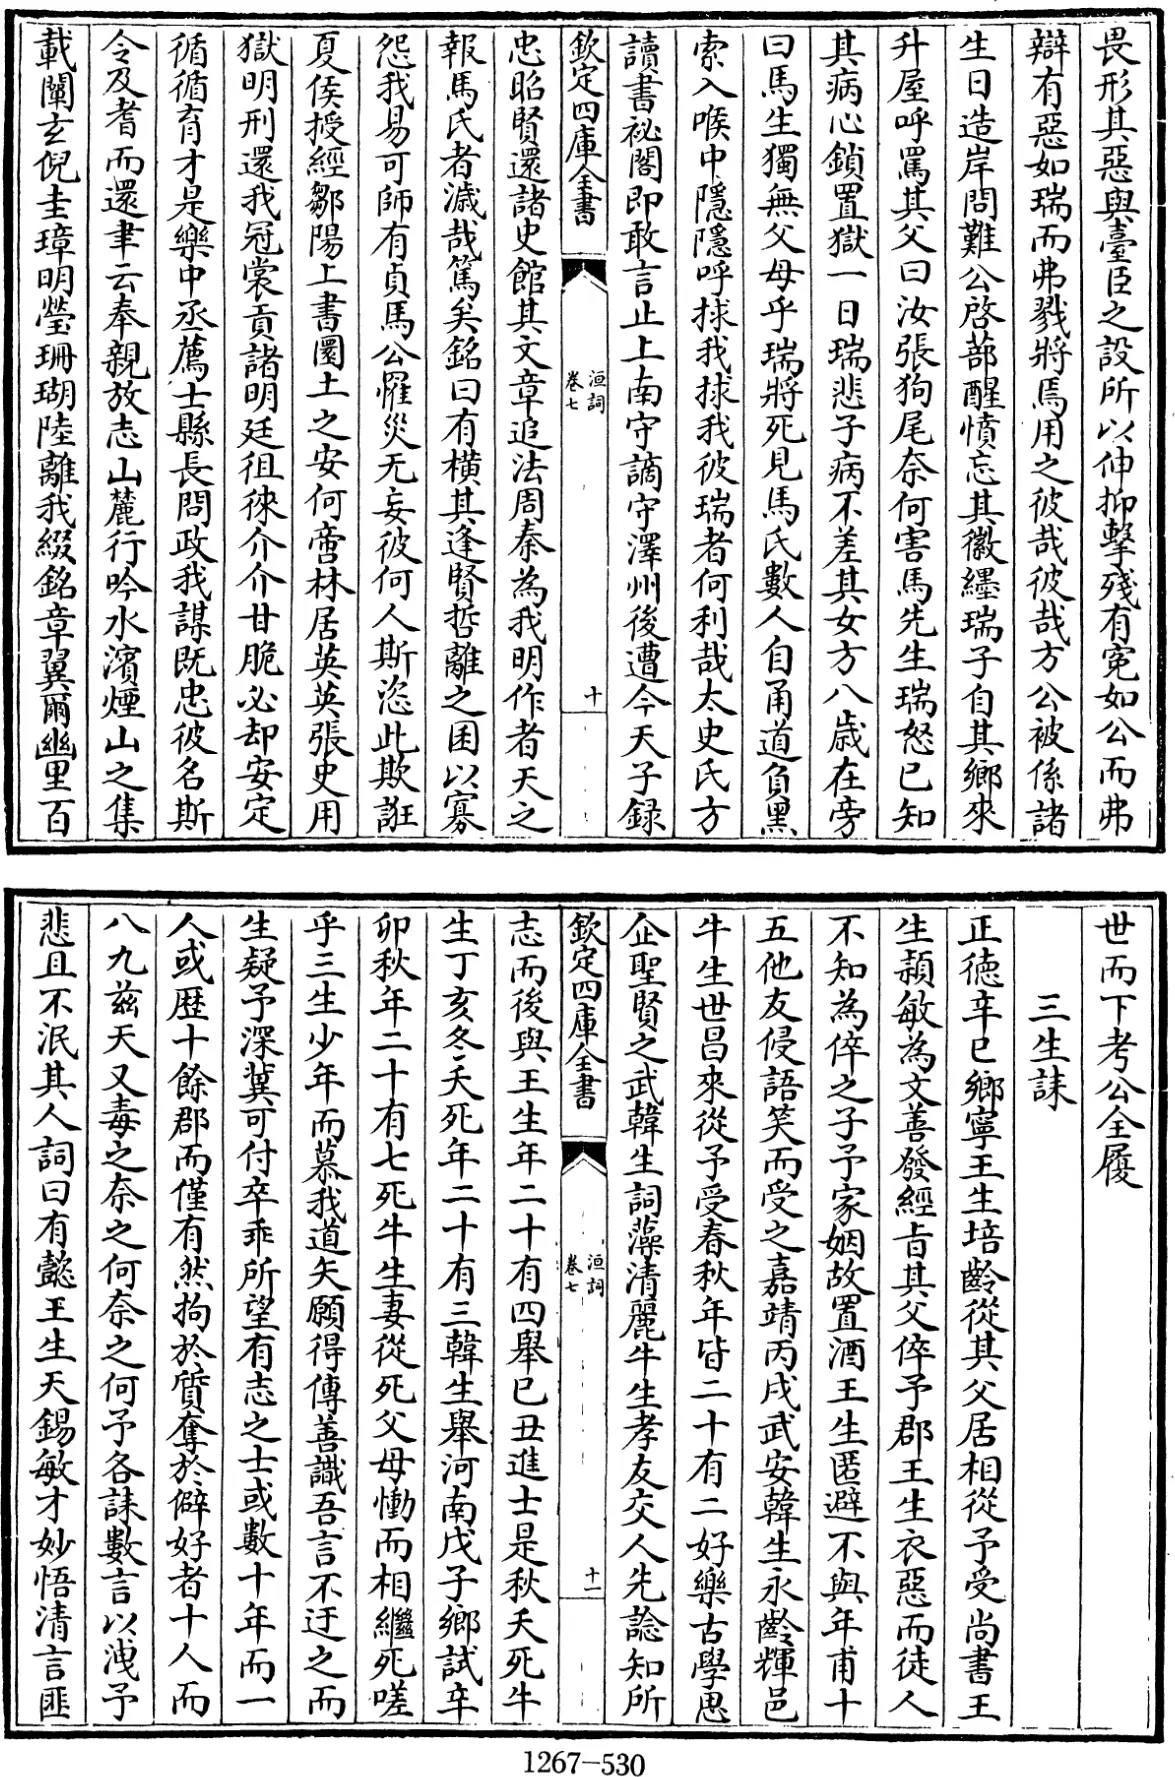 畏形其惡與臺臣之設所以伸抑擊殘有寃如公而弗
辯有惡如瑞而弗戮將焉用之彼哉彼哉方公被係諸
生日造岸問難公啓蔀醒憤忘其徽纆瑞子自其鄉來
升屋呼罵其父曰汝張狗尾奈何害馬先生瑞怒已知
其病心鎖置獄一日瑞悲子病不差其女方八歳在旁
曰馬生獨無父母乎瑞將死見馬氏數人自甬道負黑
索入喉中隱隱呼捄我捄我彼瑞者何利哉太史氏方
讀書祕閣即敢言止上南守謫守澤州後遭今天子録
欽定四庫全書
洹詞
卷七
十
忠昭賢還諸史館其文章追法周秦為我明作者天之
報馬氏者濊哉篤矣銘曰有橫其逢賢哲離之困以寡
怨我易可師有貞馬公罹災无妄彼何人斯恣此欺誑
夏侯授經鄒陽上書圜土之安何啻林居英英張史用
獄明刑還我冠裳貢諸明廷徂徠介介甘脆必却安定
循循育才是樂中丞薦士縣長問政我謀既忠彼名斯
令及耆而還聿云奉親放志山麓行吟水濱煙山之集
載闡玄倪圭璋明瑩珊瑚陸離我綴銘章翼爾幽里百
世而下考公全履
三生誄
正德辛巳鄉寧王生培齡從其父居相從予受尚書王
生頴敏為文善發經旨其父倅予郡王生衣惡而徒人
不知為倅之子予家姻故置酒王生匿避不與年甫十
五他友侵語笑而受之嘉靖丙戌武安韓生永齡輝邑
牛生世昌來從予受春秋年皆二十有二好樂古學思
企聖賢之武韓生詞藻清麗牛生孝友交人先諗知所
欽定四庫全書
洹詞
卷七
十一
志而後與王生年二十有四舉己丑進士是秋夭死牛
生丁亥冬夭死年二十有三韓生舉河南戊子鄉試辛
卯秋年二十有七死牛生妻從死父母慟而相繼死嗟
乎三生少年而慕我道矢願得傳善識吾言不迂之而
生疑予深冀可付卒乖所望有志之士或數十年而一
人或歴十餘郡而僅有然拘於質奪於僻好者十人而
八九兹天又毒之奈之何奈之何予各誄數言以洩予
悲且不泯其人詞曰有懿王生天錫敏才妙悟清言匪
1267—530